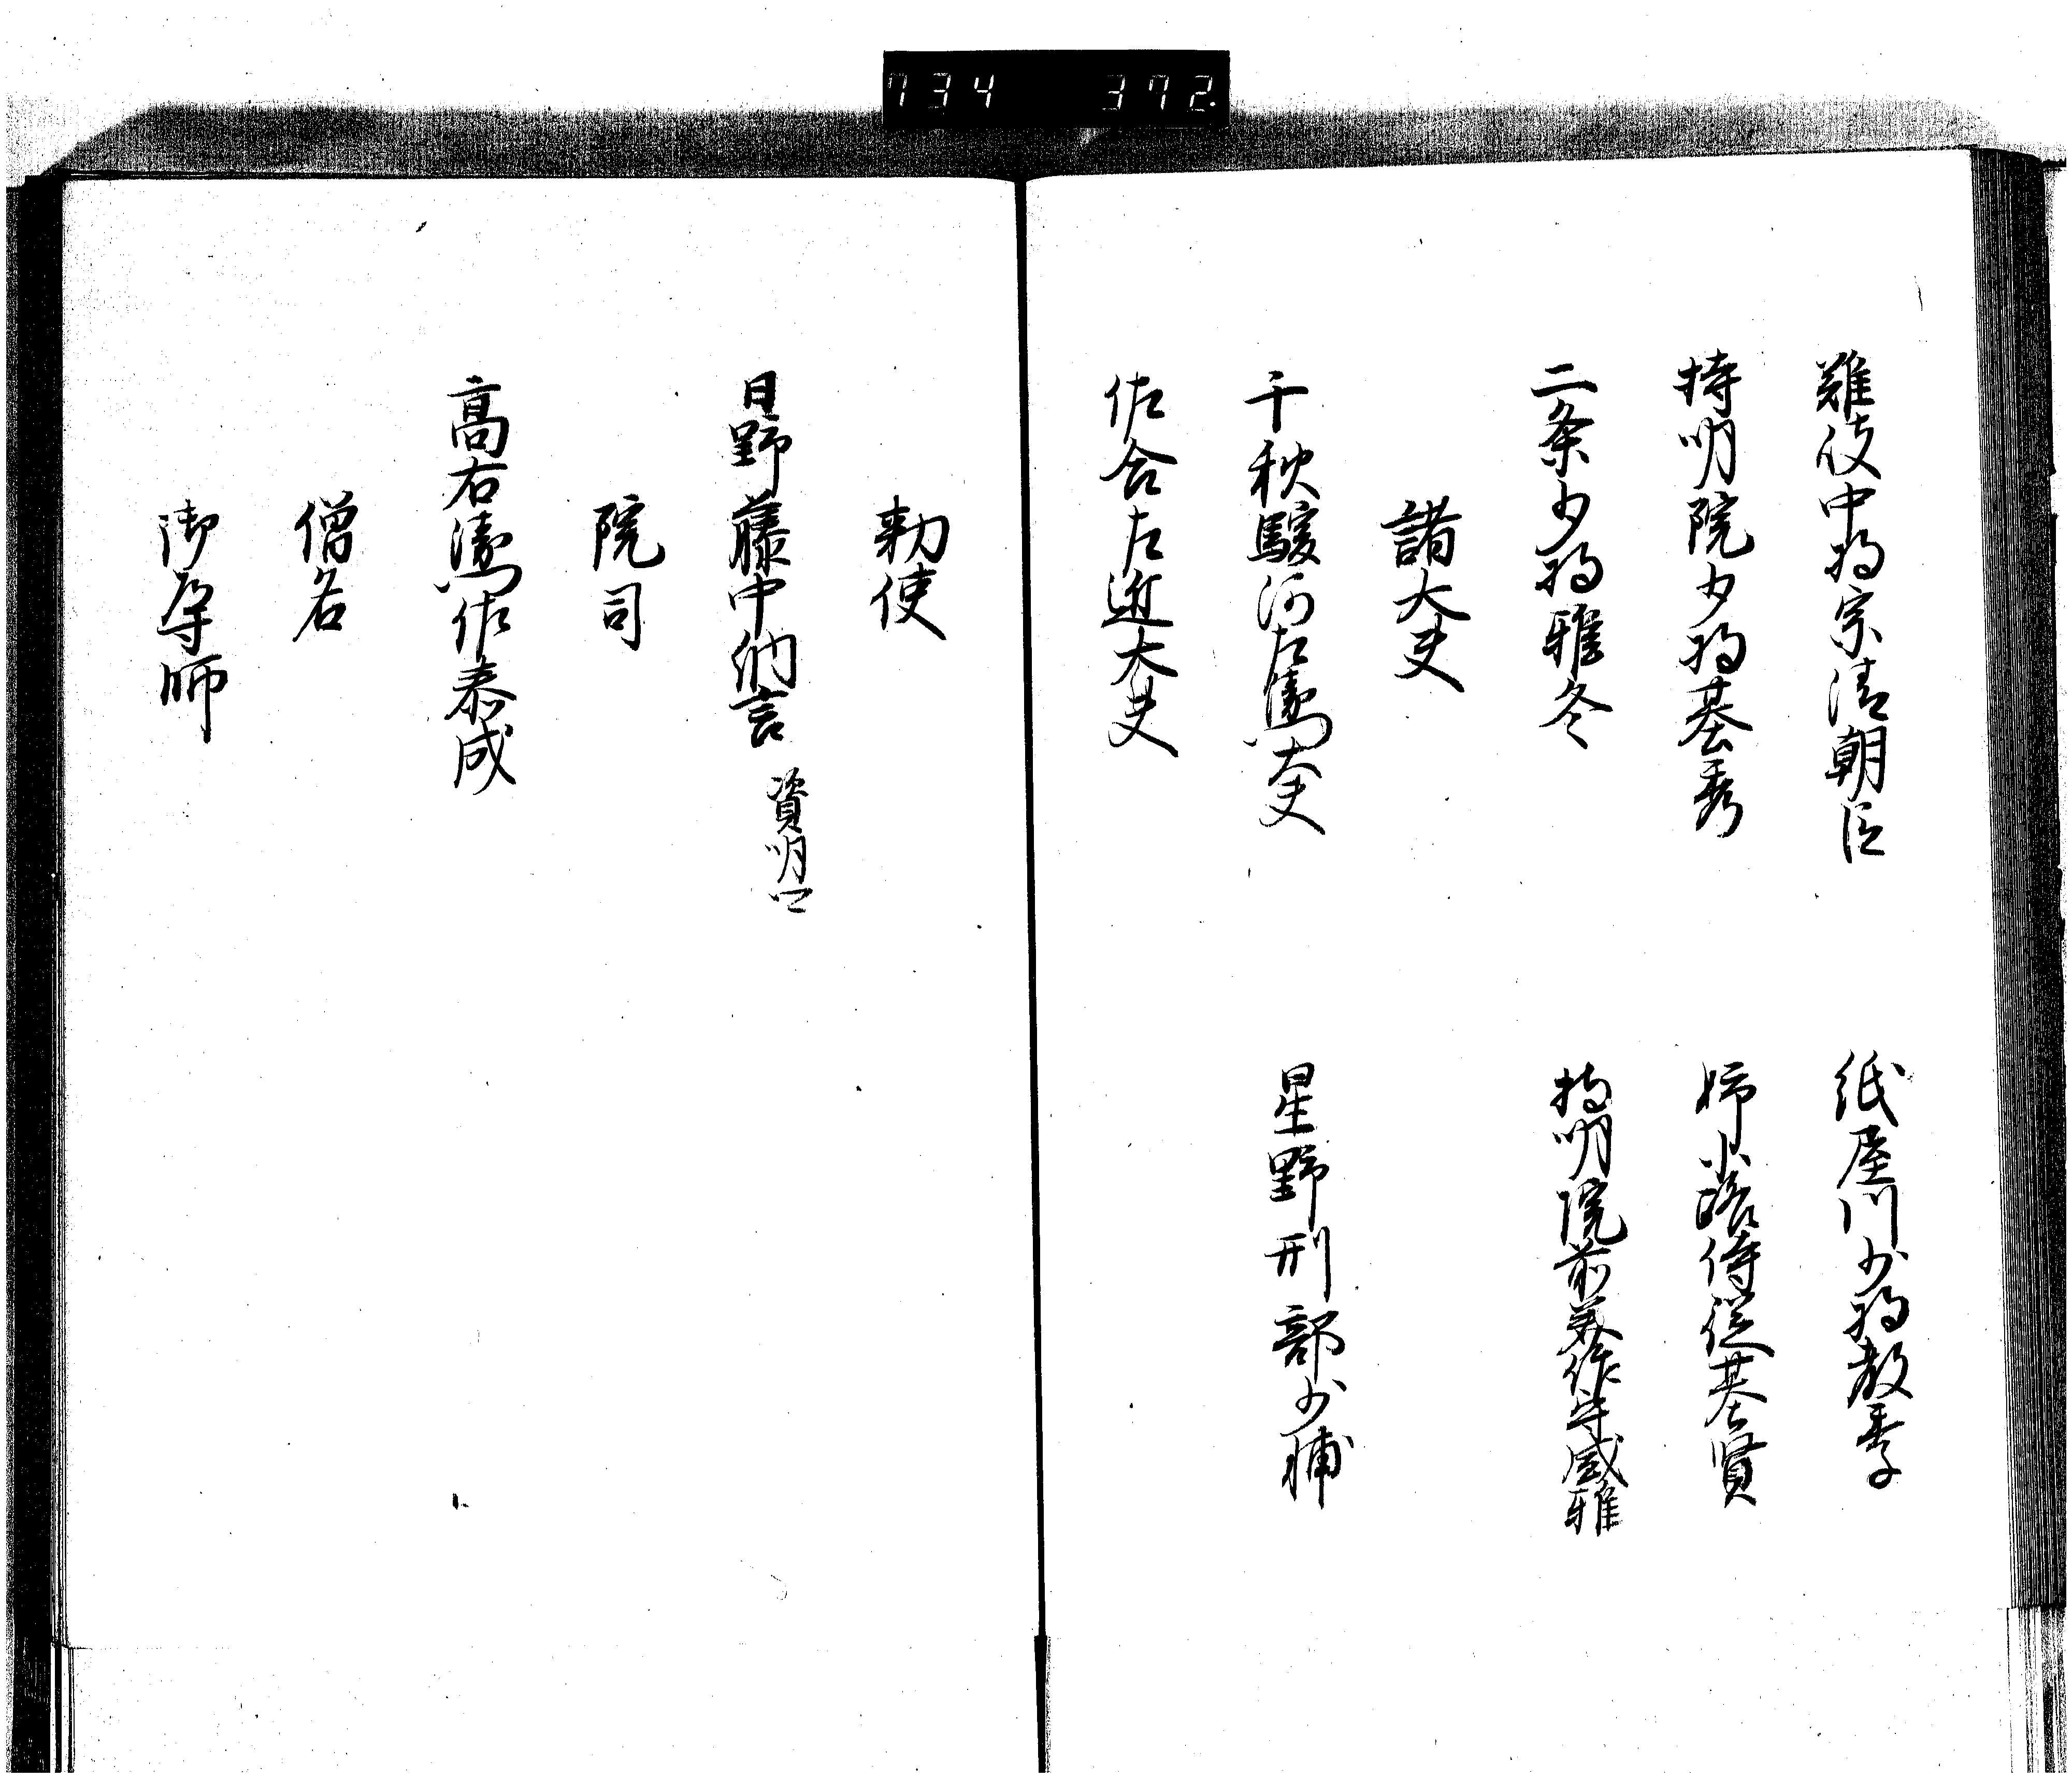 734 372
難波中将宗清朝臣
紙屋川少将教季
持明院少将基秀
姉小路侍従基賢
二条少将雅冬
持明院前美作守盛雅
諸大夫
千秋駿河左衛門大夫
星野刑部少輔
佐合左近大夫
勅使
日野藤中納言 資明卿
院司
高右衛門佐泰成
僧名
御導師